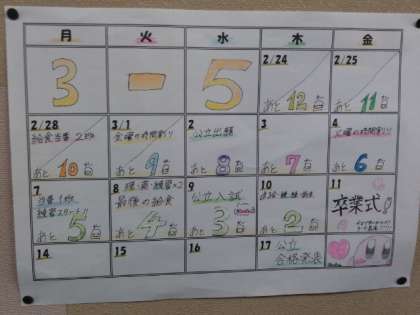 月 火 水 木 金
3 - 5
2/24
あと 12日
2/25
あと 11日
2/28
給食当番 2班
あと 10日
3/1
金曜の時間割り!
あと 9日
2
公立出願
あと 8日
3
あと 7日
4
火曜の時間割り!
あと 6日
7
当番 1班
練習スタート!!
あと 5日
8
最後の給食
あと 4日
9
公立入試
あと 3日
10
あと 2日
11
卒業式!
14
15
16
17 公立
合格発表